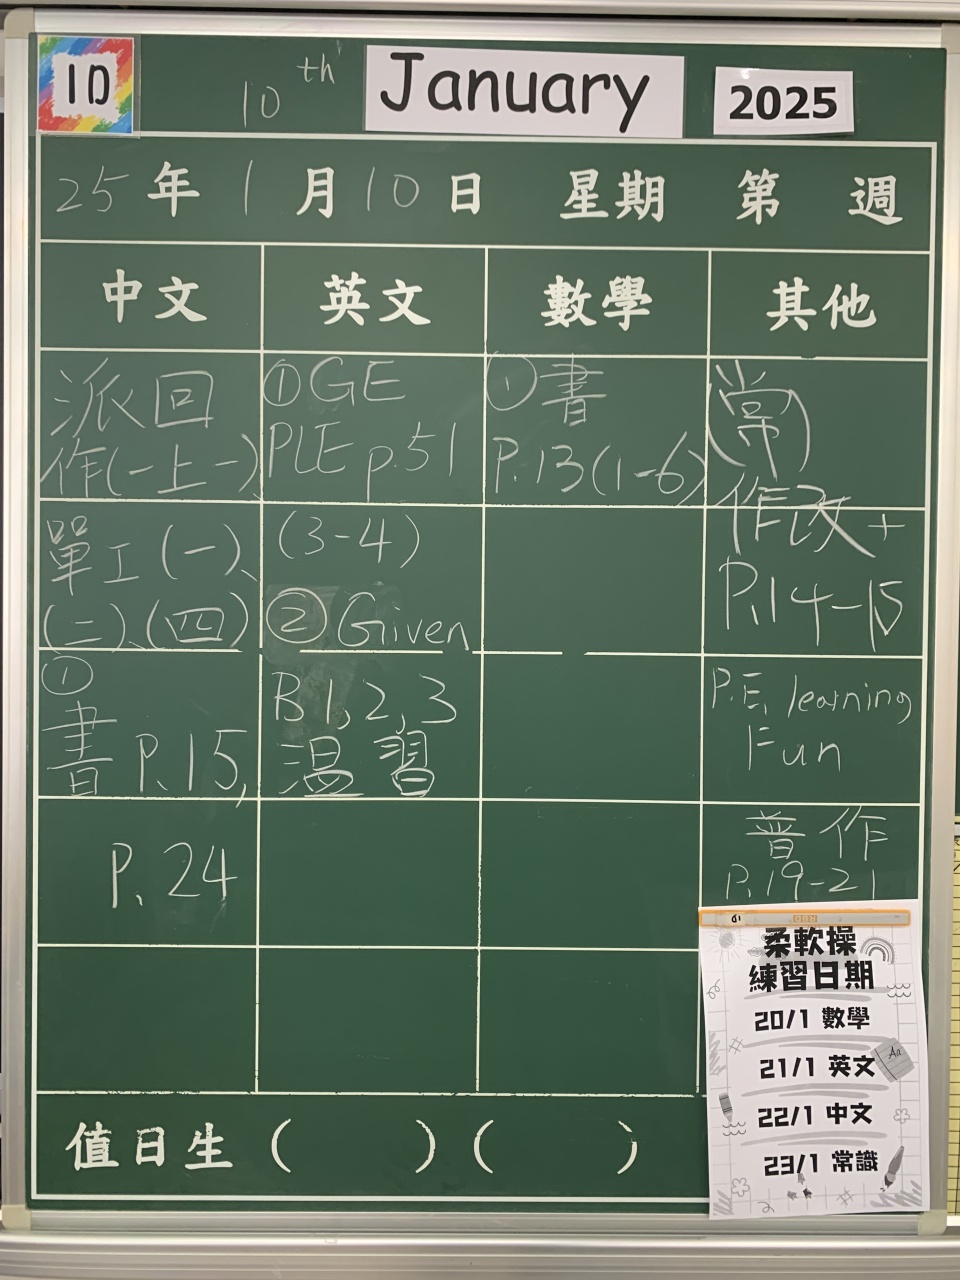 1D
10th January 2025
25年1月10日 星期 第 週
中文 英文 數學 其他
派回
作(一上一)
單工(一)、
(二)、(四)
①
書P.15,
P.24
①GE
PLE p.51
(3-4)
②Given
B1,2,3
溫習
①書
P.13(1-6)
(常)
作改+
P.14-15
P.E, learning
Fun
普作
P.19-21
柔軟操
練習日期
20/1 數學
21/1 英文
22/1 中文
23/1 常識
Aa
值日生( )( )